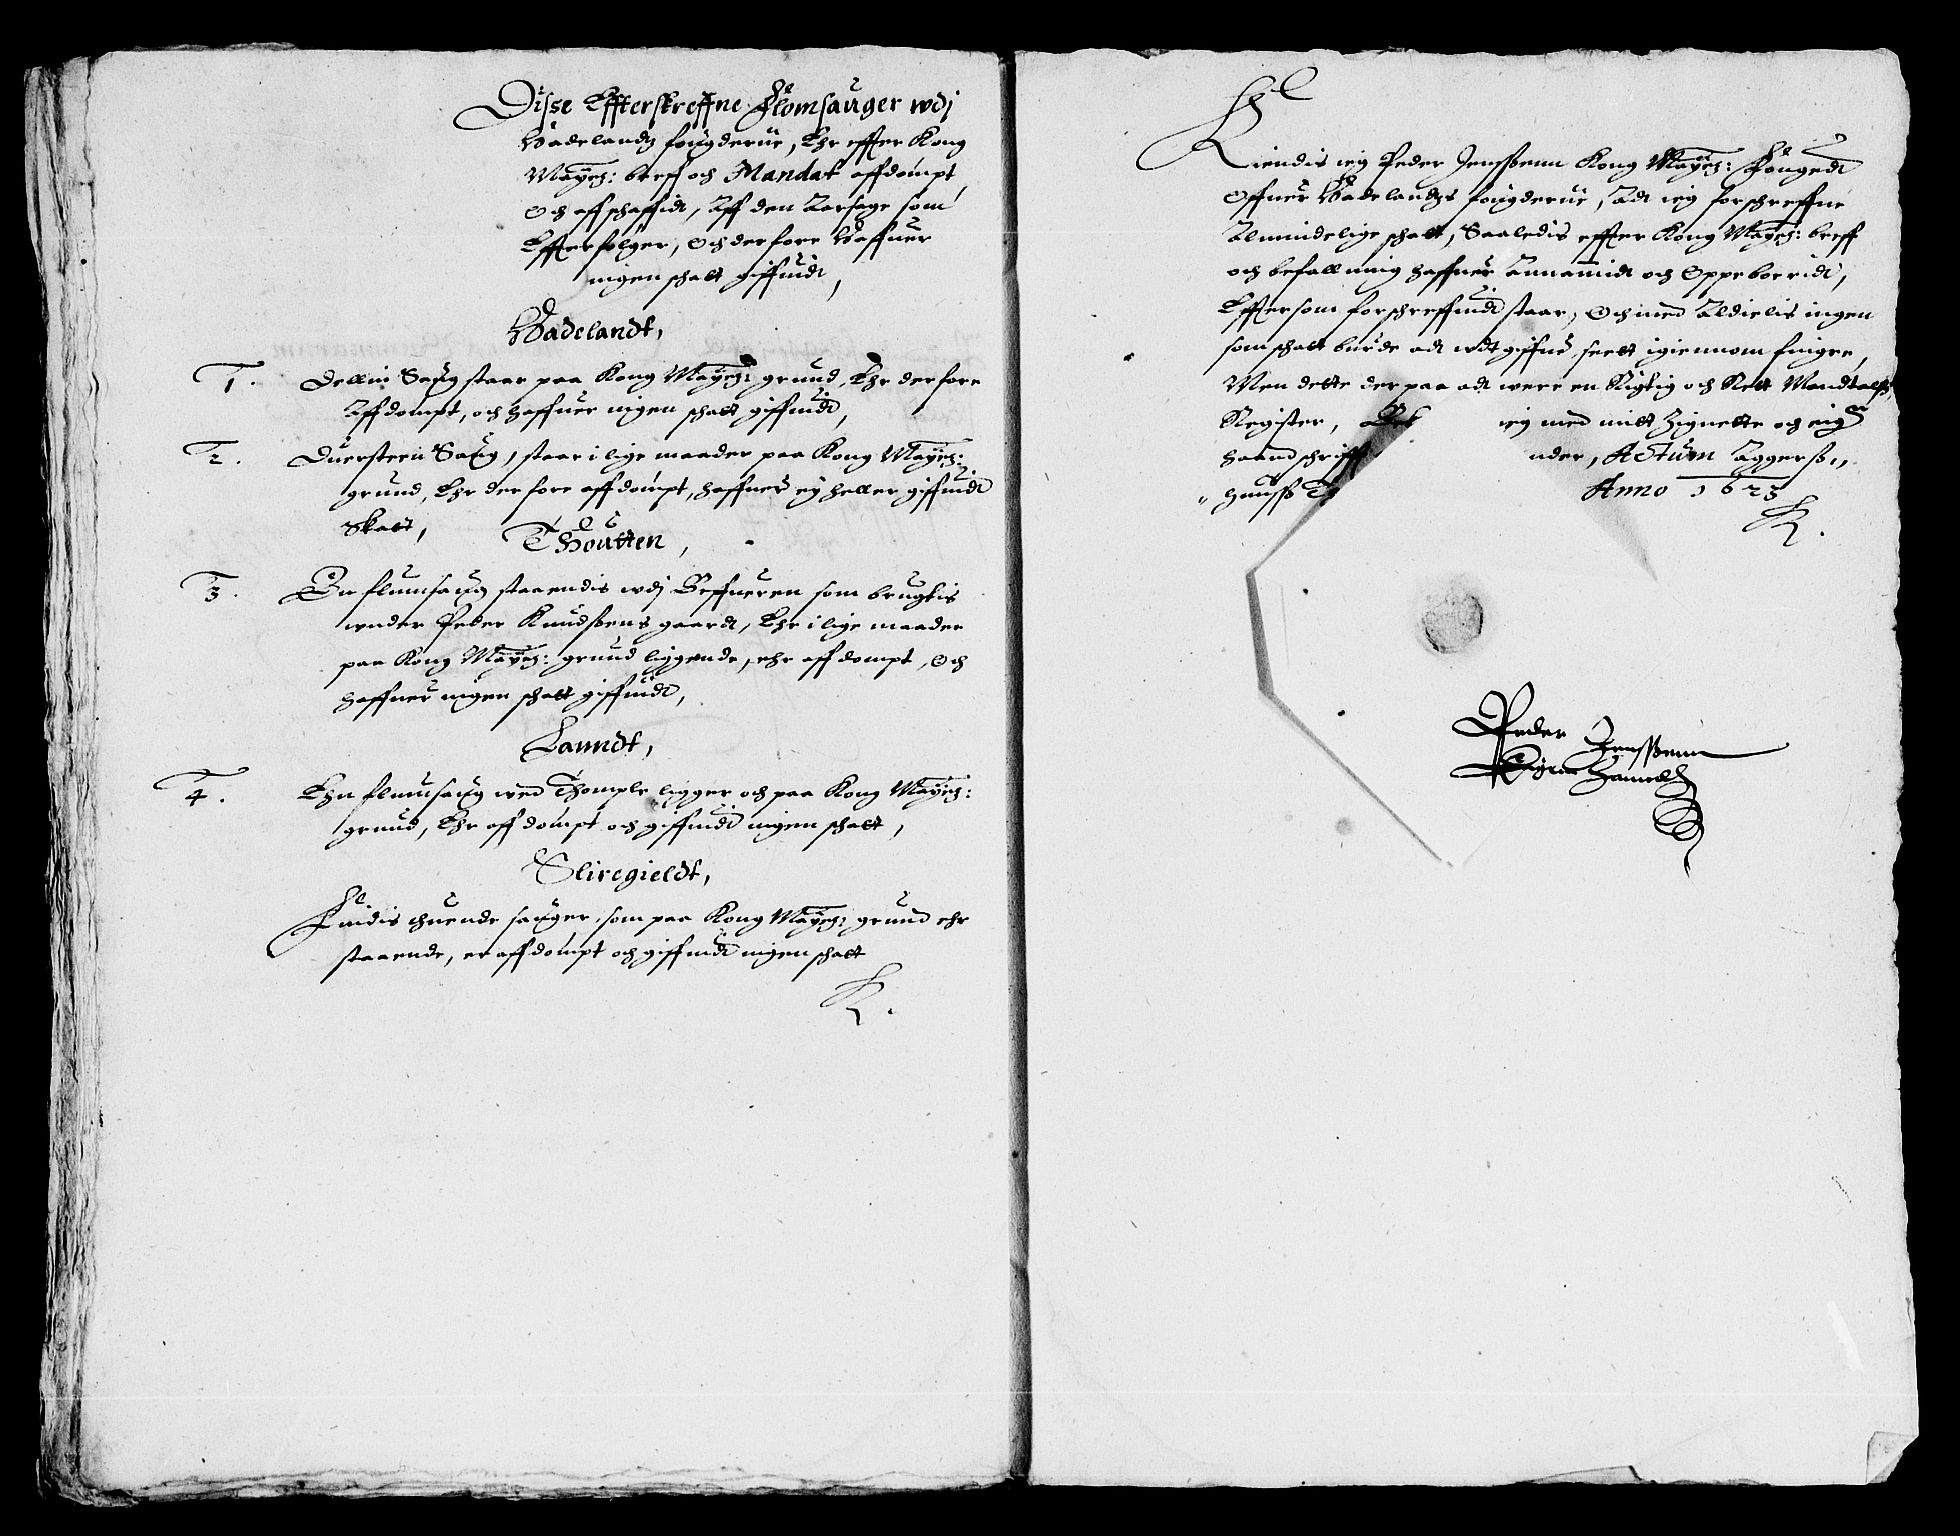 Disse Effterskreffne Flomsauger wdj
Hadelandtz fougderiie, Ehr effter Kong
Maÿtz: breff och Mandat affdömpt
Och affschaffidt, Aff den Aarsage som
Effterfølger, Och derfore Haffuer
ingen schatt giffuidt,
Hadelandt,
1. Dellin Saug staar paa Kong Maÿtz: grund, Ehr derfore
Affdömpt, och haffuer ingen schatt giffuidt,
2. Duersteen Saug, staar i lige maader paa Kong Maÿtz:
grund, Ehr derfore affdömpt, haffuer ey heller giffuidt
Skatt,
Thoutten,
3. En flumsaug staaendis wdj Beffueren som brugtis
wnder Peder Knudsßens gaardt, Ehr i lige maader
paa Kong Maÿtz: grund liggende, ehr affdompt, Och
haffuer ingen schatt giffuidt,
Lanndt,
4. Ehn flumsaug wed Thomple ligger och paa Kong Maÿtz:
grund, Ehr affdömpt och giffuidt ingen schatt,
Sliregieldt,
Findis thuende sauger, som paa Kong Maÿtz: grund ehr
staaende, er affdömpt och giffuidt ingen schatt
Kiendis ieg Peder Jensßenn Kong Maÿtz: Fougedt
Offuer Hadelandtzs fougderiie, Adt ieg forschreffne
Almindelige schatt, Saaledis effter Kong Maÿtz: breff
och befallning haffuer Annammidt och Oppeborridt,
Efftersom forschreffuidt staar, Och med Aldielis ingen
som schatt burde adt wdtgiffue, seett igiennom fingre,
Men dette der paa adt were en Rigtig och Rett Mandtalß
Register, Bek ieg med mitt Zignette och eigen
haandschrifft ader, Actum Aggerß„
„hauß Anno 1623
Peder Jensßenn
Eigen Handt